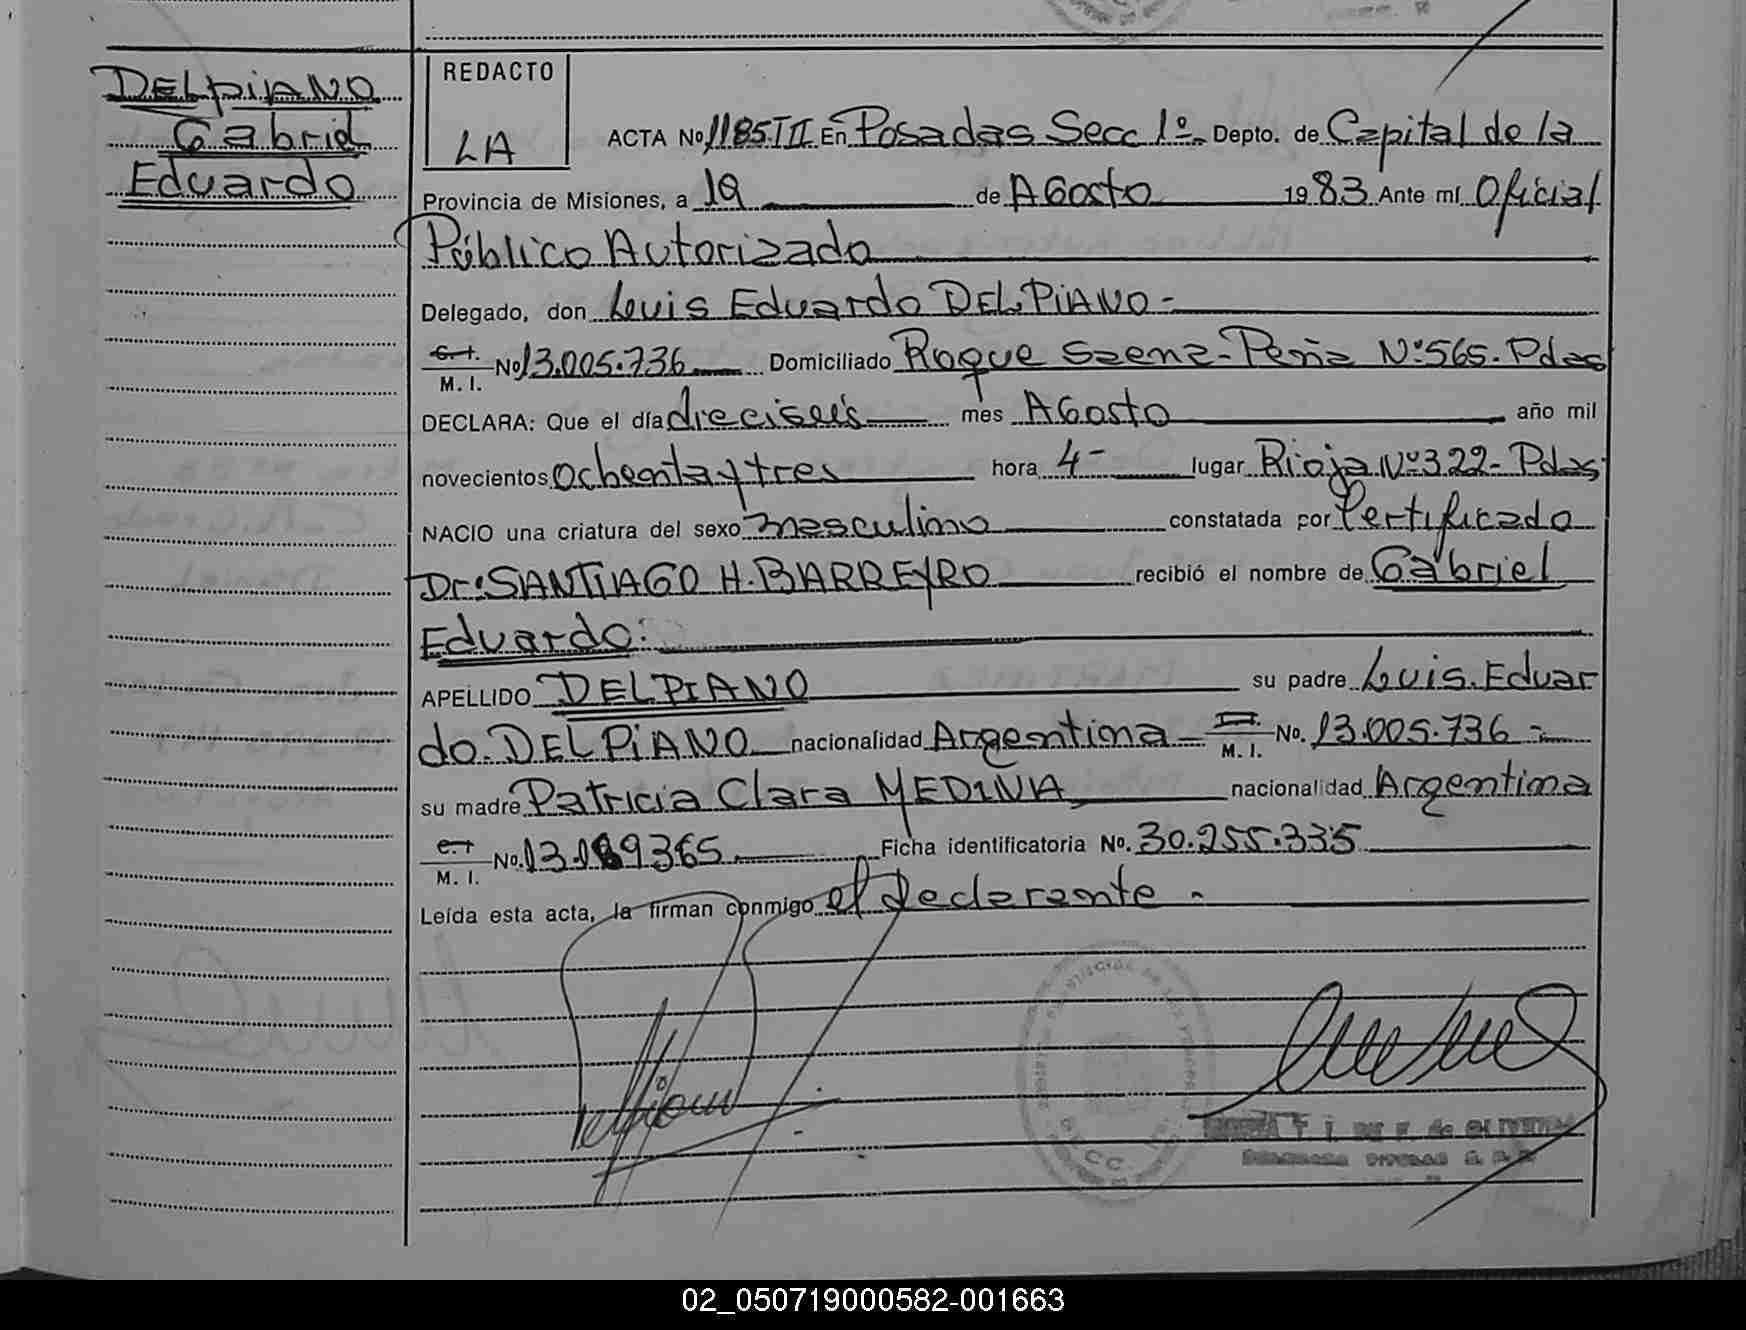 DELPIANO
Gabriel
Eduardo
REDACTO
LA
ACTA No 1185 TII En Posadas Secc 1º Depto. de Capital de la
Provincia de Misiones, a 19 de AGosto 1983 Ante mí Oficial
Público Autorizado
Delegado, don Luis Eduardo DELPIANO-
C.I. M. I. No 13.005.736 Domiciliado Roque Saenz-Peña Nº565. Pdas
DECLARA: Que el día dieciseís mes AGosto año mil
novecientos ochenta y tres hora 4- lugar Rioja Nº322- Pdas.
NACIO una criatura del sexo masculino constatada por Certificado
Dr: SANTIAGO H. BARREYRO recibió el nombre de Gabriel
Eduardo:
APELLIDO DELPIANO su padre Luis. Eduar
do. DELPIANO nacionalidad Argentina M. I. No. 13.005.736-
su madre Patricia Clara MEDINA nacionalidad Argentina
M. I. No. Ficha identificatoria No. 30.255.335
Leída esta acta, la firman conmigo el declarante.
SECC.
de OLIVEIRA
02_050719000582-001663